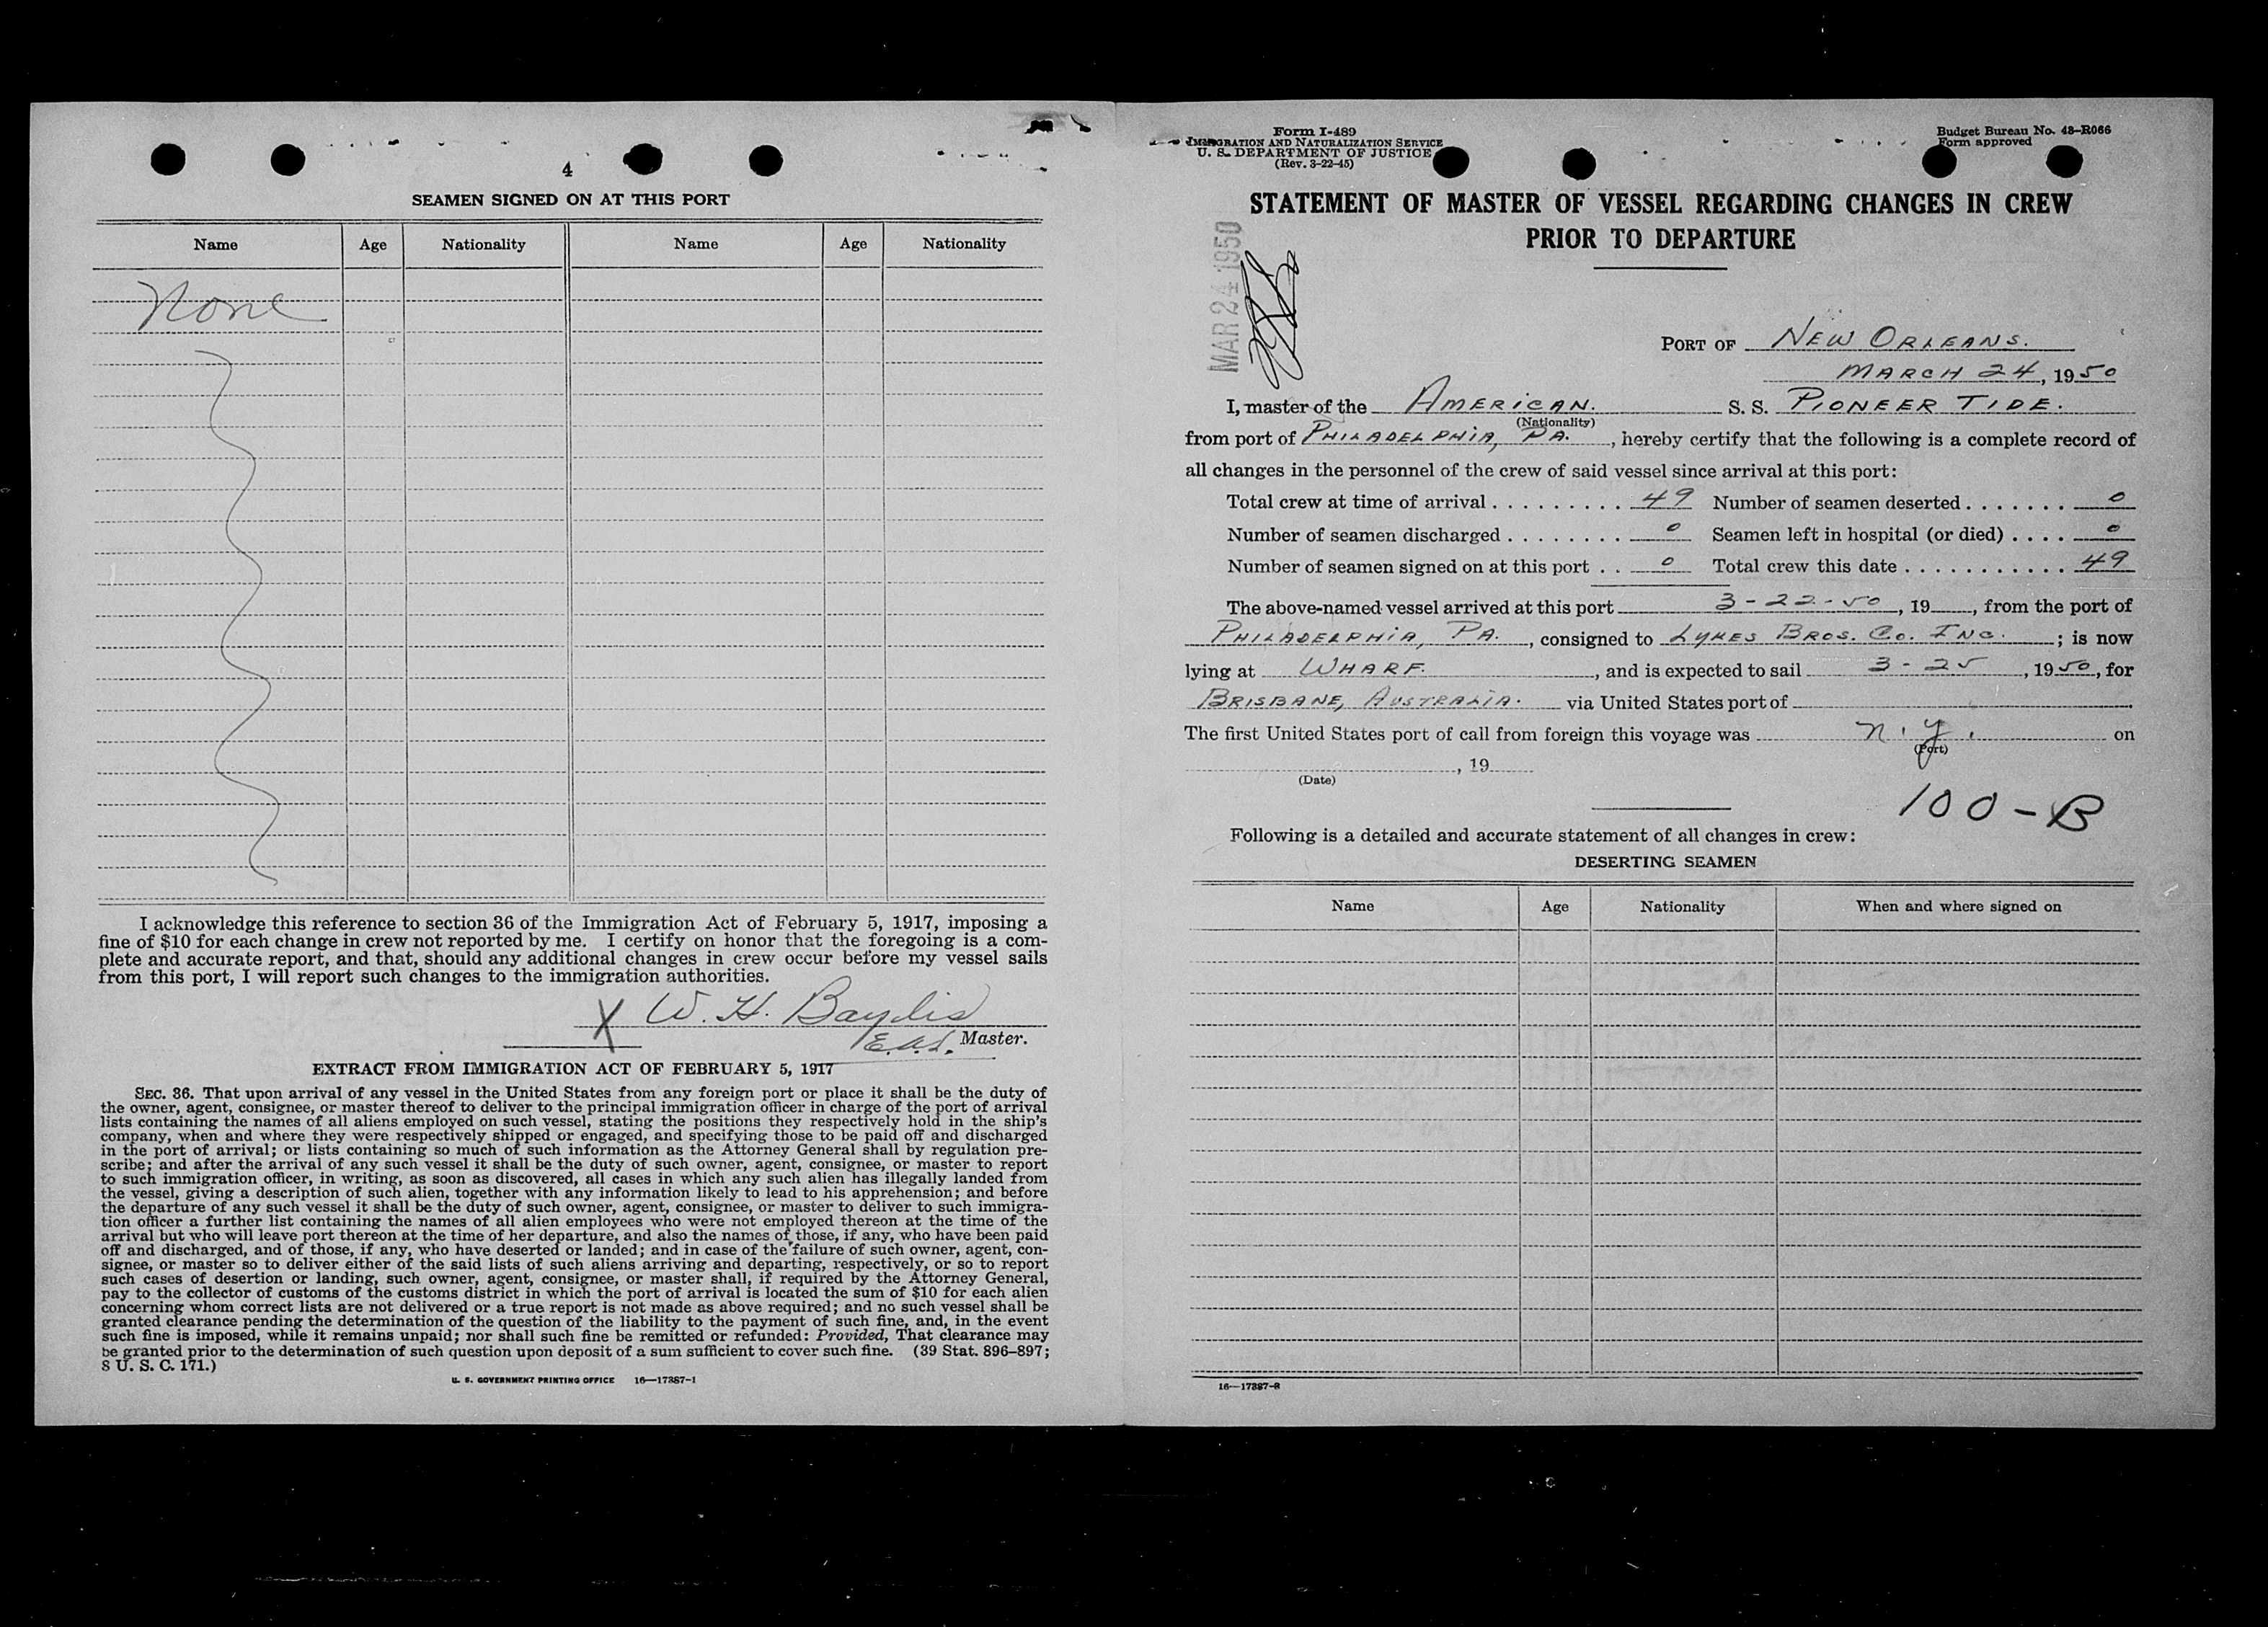 4
SEAMEN SIGNED ON AT THIS PORT
Name Age Nationality Name Age Nationality
None
I acknowledge this reference to section 36 of the Immigration Act of February 5, 1917, imposing a
fine of $10 for each change in crew not reported by me. I certify on honor that the foregoing is a com-
plete and accurate report, and that, should any additional changes in crew occur before my vessel sails
from this port, I will report such changes to the immigration authorities.
X W. H. Baylis
Master.
EXTRACT FROM IMMIGRATION ACT OF FEBRUARY 5, 1917
SEC. 36. That upon arrival of any vessel in the United States from any foreign port or place it shall be the duty of
the owner, agent, consignee, or master thereof to deliver to the principal immigration officer in charge of the port of arrival
lists containing the names of all aliens employed on such vessel, stating the positions they respectively hold in the ship's
company, when and where they were respectively shipped or engaged, and specifying those to be paid off and discharged
in the port of arrival; or lists containing so much of such information as the Attorney General shall by regulation pre-
scribe; and after the arrival of any such vessel it shall be the duty of such owner, agent, consignee, or master to report
to such immigration officer, in writing, as soon as discovered, all cases in which any such alien has illegally landed from
the vessel, giving a description of such alien, together with any information likely to lead to his apprehension; and before
the departure of any such vessel it shall be the duty of such owner, agent, consignee, or master to deliver to such immigra-
tion officer a further list containing the names of all alien employees who were not employed thereon at the time of the
arrival but who will leave port thereon at the time of her departure, and also the names of those, if any, who have been paid
off and discharged, and of those, if any, who have deserted or landed; and in case of the failure of such owner, agent, con-
signee, or master so to deliver either of the said lists of such aliens arriving and departing, respectively, or so to report
such cases of desertion or landing, such owner, agent, consignee, or master shall, if required by the Attorney General,
pay to the collector of customs of the customs district in which the port of arrival is located the sum of $10 for each alien
concerning whom correct lists are not delivered or a true report is not made as above required; and no such vessel shall be
granted clearance pending the determination of the question of the liability to the payment of such fine, and, in the event
such fine is imposed, while it remains unpaid; nor shall such fine be remitted or refunded: Provided, That clearance may
be granted prior to the determination of such question upon deposit of a sum sufficient to cover such fine. (39 Stat. 896–897;
8 U. S. C. 171.)
U. S. GOVERNMENT PRINTING OFFICE 16—17387-1
Form I-489
IMMIGRATION AND NATURALIZATION SERVICE
U. S. DEPARTMENT OF JUSTICE
(Rev. 3-22-45)
Budget Bureau No. 43–R066
Form approved
STATEMENT OF MASTER OF VESSEL REGARDING CHANGES IN CREW
PRIOR TO DEPARTURE
MAR 24 1950
PORT OF NEW ORLEANS.
MARCH 24, 1950
I, master of the AMERICAN. S. S. PIONEER TIDE.
(Nationality)
from port of PHILADELPHIA, PA., hereby certify that the following is a complete record of
all changes in the personnel of the crew of said vessel since arrival at this port:
Total crew at time of arrival . . . . . . . . . 49 Number of seamen deserted . . . . . . . 0
Number of seamen discharged . . . . . . . . 0 Seamen left in hospital (or died) . . . . 0
Number of seamen signed on at this port . . 0 Total crew this date . . . . . . . . . . . 49
The above-named vessel arrived at this port 3-22-50, 19, from the port of
PHILADELPHIA, PA., consigned to LYKES BROS. CO. INC.; is now
lying at WHARF., and is expected to sail 3-25, 1950, for
BRISBANE, AUSTRALIA. via United States port of
The first United States port of call from foreign this voyage was N.Y. on
(Port)
, 19
(Date)
100-B
Following is a detailed and accurate statement of all changes in crew:
DESERTING SEAMEN
Name Age Nationality When and where signed on